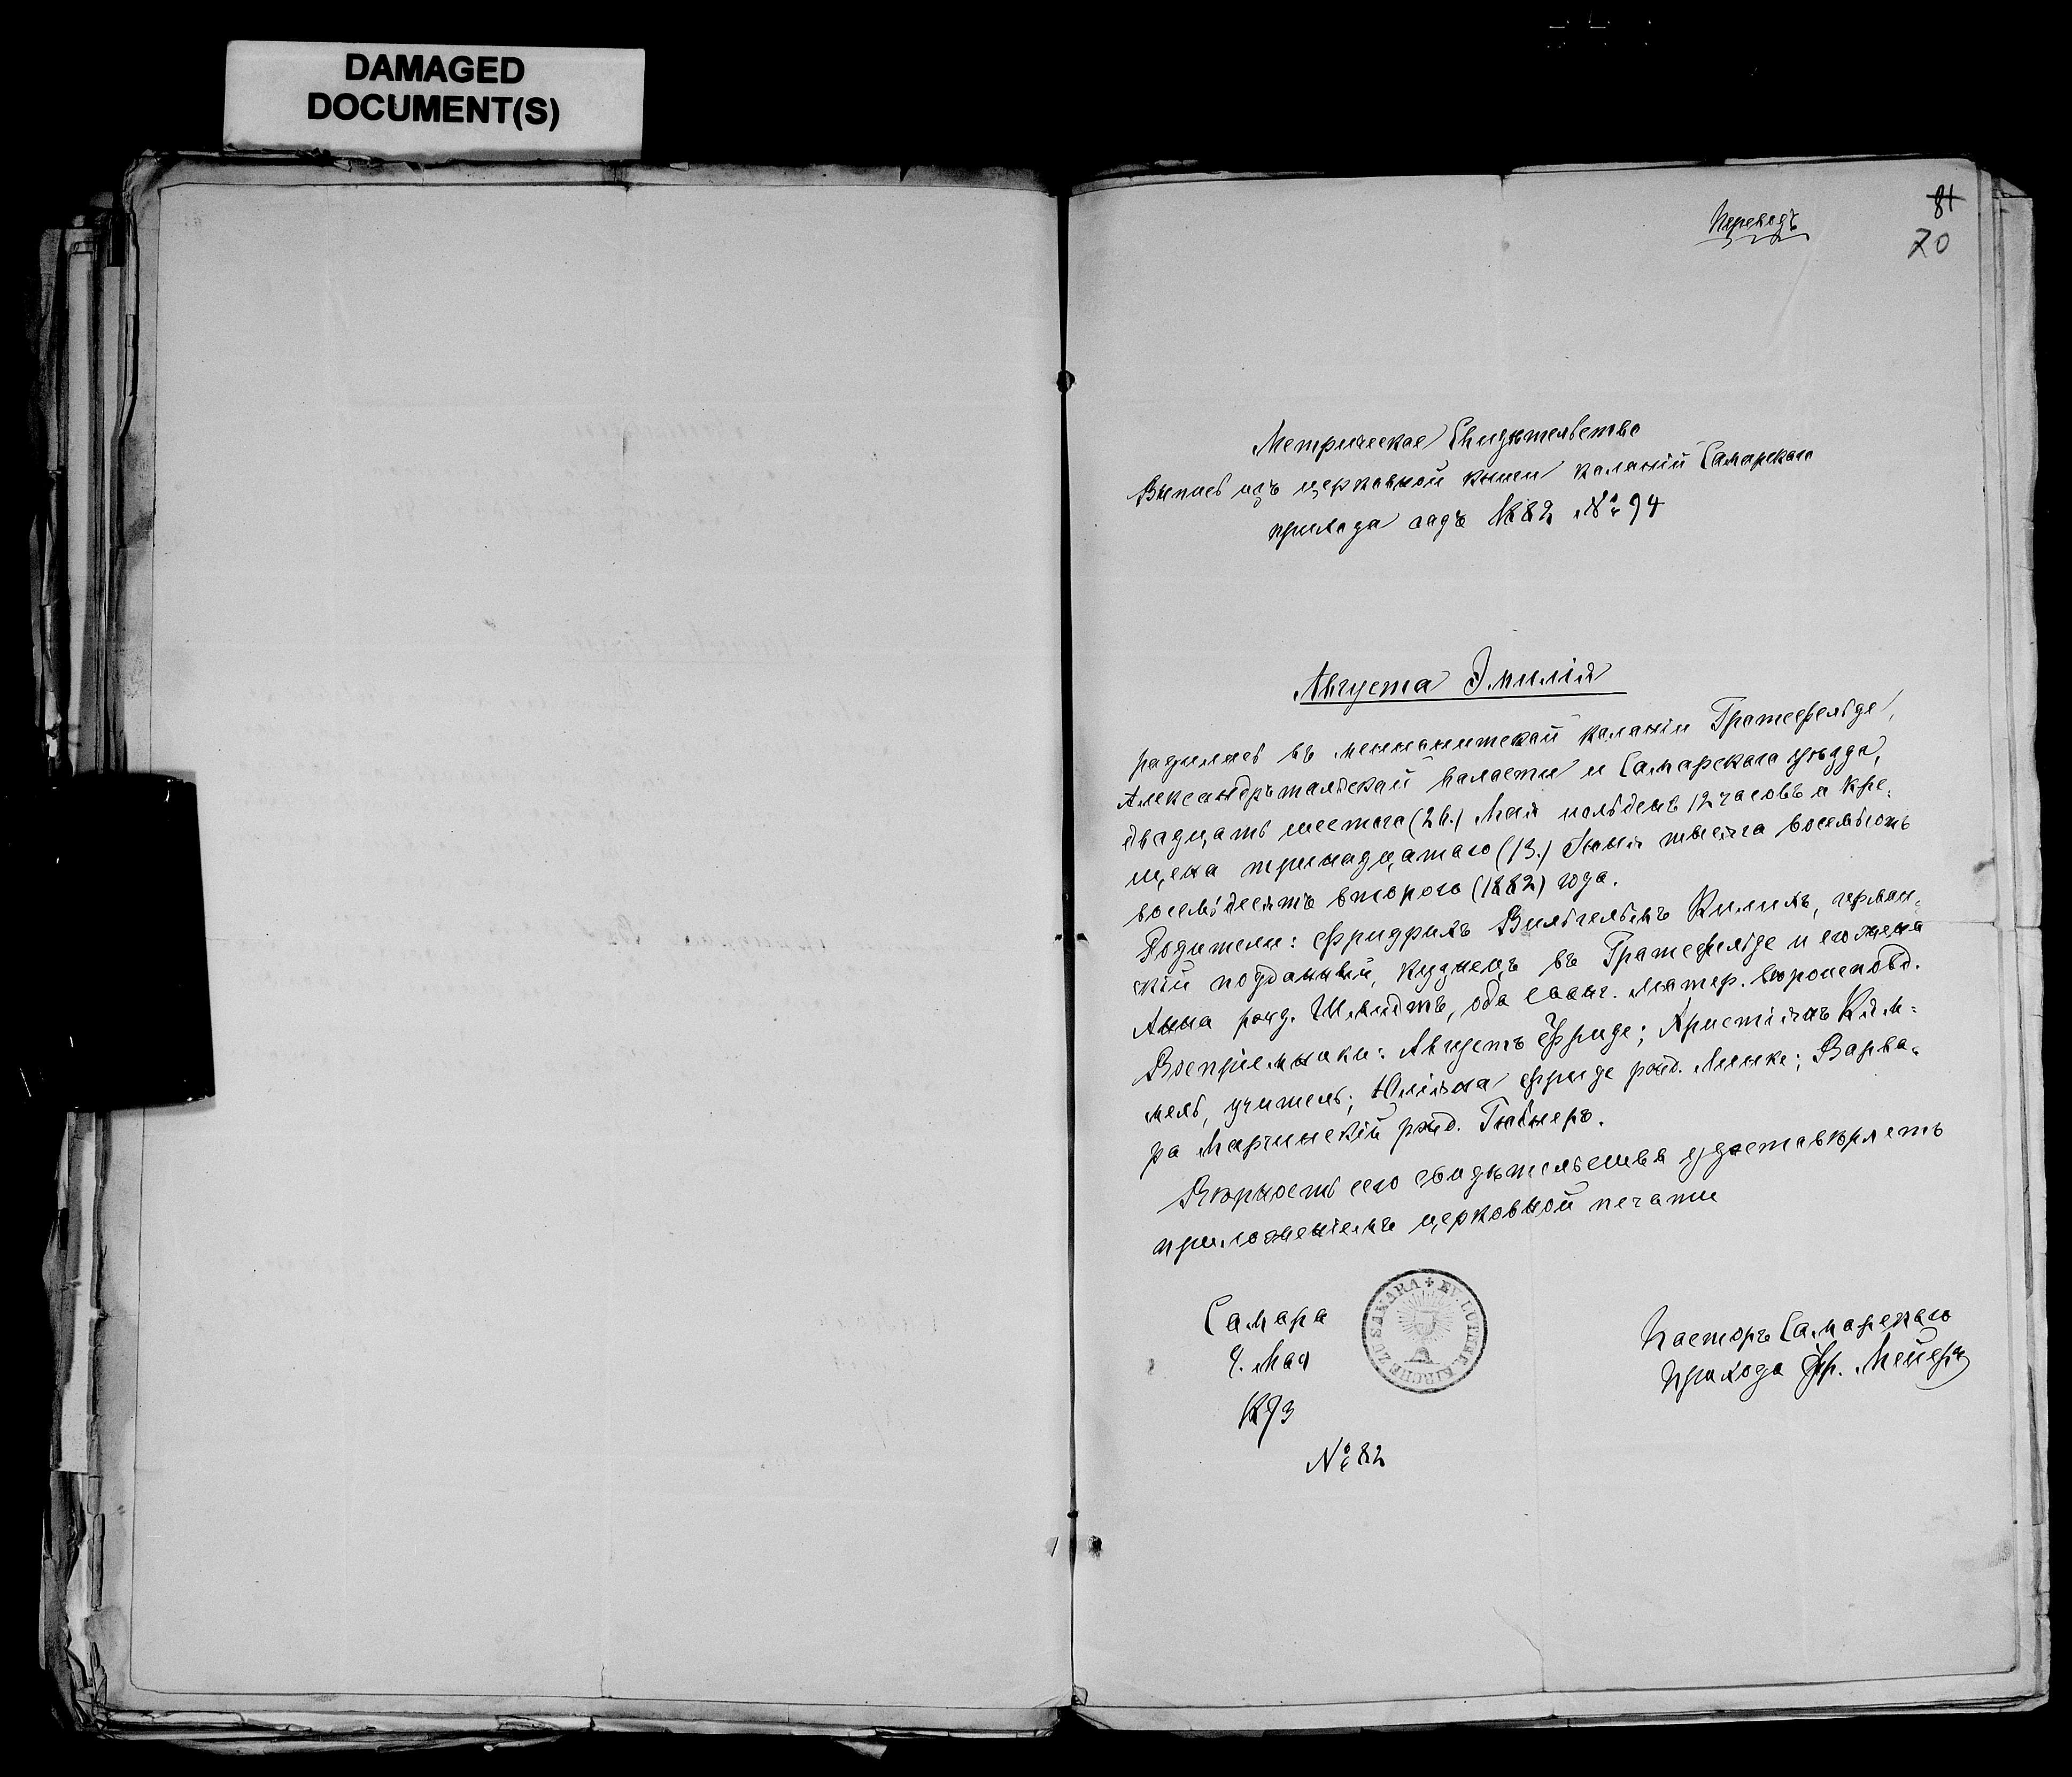 DAMAGED
DOCUMENT(S)
81
70
Переводъ
Метрическое Свидѣтельство
Выпись изъ церковной книги колоніи Самарскаго
прихода годъ 1882 № 94
Августа Эмилія
родилась въ меннонитской колоніи Гротсфельде,
Александръталской воласти и Самарскаго уѣзда,
двадцать шестого (26.) Мая польдень 12 часовъ и кре-
щена тринадцатаго (13.) Іюня тысяча восемьсотъ
восемьдесятъ второго (1882) года.
Родители: Фридрихъ Вильгельмъ Килихъ, герман-
скій подданный, кузнецъ въ Гротсфельде и его жена
Анна рожд. Шмидтъ, оба еванг. лютер. вѣроисповѣд.
Воспріемники: Августъ Фриде; Христіанъ Ким-
мель, учитель; Юліана Фриде рожд. Линке; Варва-
ра Марчинскій рожд. Гюбнеръ.
Вѣрность сего свидѣтельства удоставѣряетъ
приложеніемъ церковной печати
Самара
9. Мая
1893
№ 82
EV. LUTHER. KIRCHE ZU SAMARA
Пасторъ Самарскаго
Прихода Фр. Мейеръ